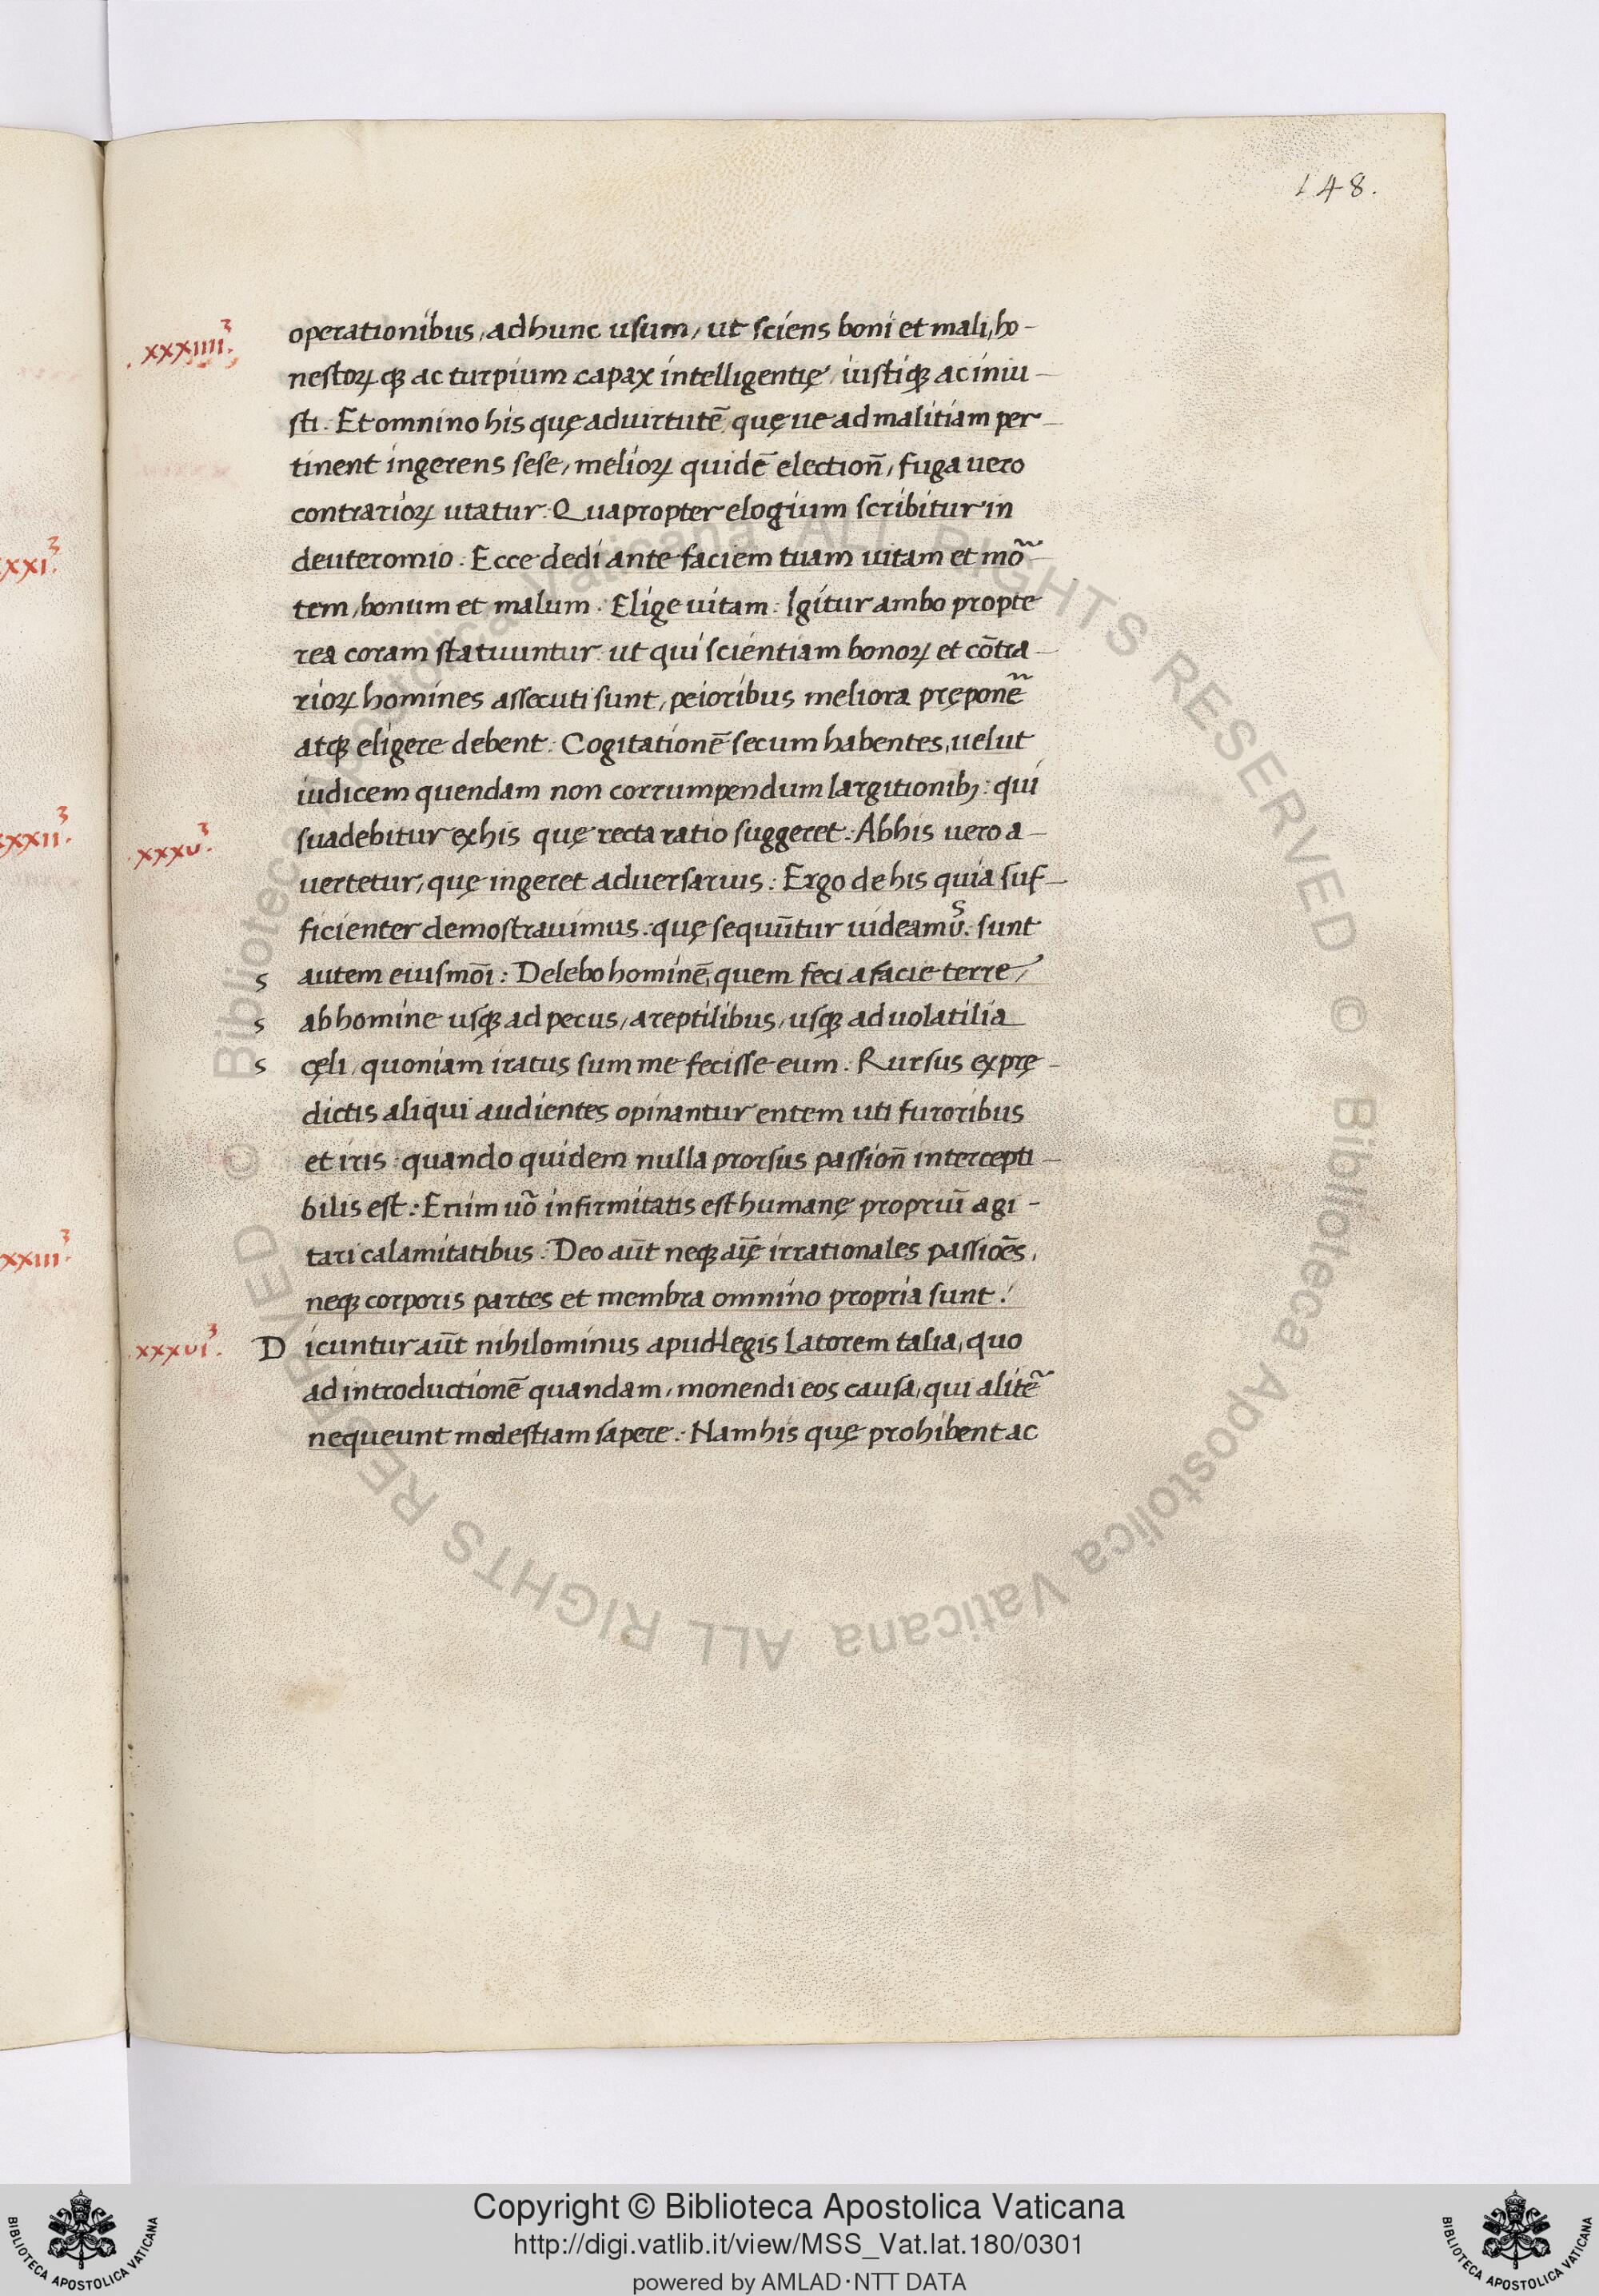 148.
.xxxiiii.³ operationibus, ad hunc usum, ut sciens boni et mali, ho-
nestoꝝ qꝫ ac turpium capax intelligentię, iustiqꝫ ac iniu-
sti. Et omnino his quę ad uirtutē, quę ue ad malitiam per-
tinent ingerens sese, melioꝝ quidē electioñ, fuga uero
contrarioꝝ utatur. Quapropter elogium scribitur in
deuteromio. Ecce dedi ante faciem tuam uitam et mo~
tem, bonum et malum. Elige uitam. Igitur ambo propte
rea coram statuuntur: ut qui scientiam bonoꝝ et cōtra-
rioꝝ homines assecuti sunt, peioribus meliora pręponē~
atqꝫ eligere debent. Cogitationē secum habentes, uelut
iudicem quendam non corrumpendum largitionibꝫ: qui
.xxxv.³ suadebitur ex his quę recta ratio suggeret. Ab his uero a-
uertetur, quę ingeret aduersarius: Ergo de his quia suf-
ficienter demostrauimus: quę sequūtur uideamus. sunt
s autem eiusmōi: Delebo hominē, quem feci a facie terre,
s ab homine usqꝫ ad pecus, a reptilibus, usqꝫ ad uolatilia
s cęli, quoniam iratus sum me fecisse eum. Rursus ex prę-
dictis aliqui audientes opinantur entem uti furoribus
et iris: quando quidem nulla prorsus passioñ intercepti-
bilis est: Enim uō infirmitatis est humanę propriū agi-
tari calamitatibus. Deo aūt neqꝫ aīę irrationales passioēs,
neqꝫ corporis partes et membra omnino propria sunt.
.xxxvi.³ Dicuntur aūt nihilominus apud legis Latorem talia, quo
ad introductionē quandam, monendi eos causa, qui alitē~
nequeunt modestiam sapere. Nam his quę prohibent ac
xxxi.³
xxxii.³
xxxiii.³
© Biblioteca Apostolica Vaticana ALL RIGHTS RESERVED © Biblioteca Apostolica Vaticana ALL RIGHTS RESERVED
Copyright © Biblioteca Apostolica Vaticana
http://digi.vatlib.it/view/MSS_Vat.lat.180/0301
powered by AMLAD·NTT DATA
BIBLIOTECA APOSTOLICA VATICANA
BIBLIOTECA APOSTOLICA VATICANA